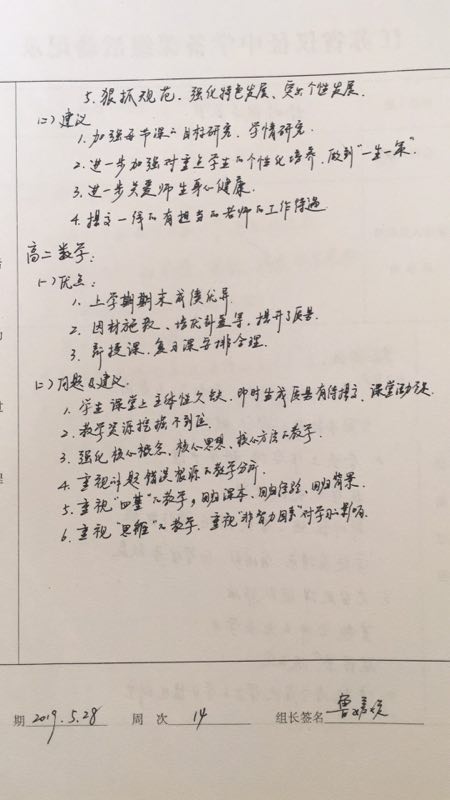 5. 狠抓规范、强化特色发展、突出个性发展.
(二) 建议
1. 加强每节课的目标研究、学情研究.
2. 进一步加强对重点学生的个性化培养，做到“一生一策”.
3. 进一步关爱师生身心健康.
4. 提高一线的有担当的老师的工作待遇.
高二数学：
(一) 优点：
1. 上学期期末成绩优异.
2. 因材施教、培优补差等，提升了质量.
3. 新授课、复习课安排合理.
(二) 问题及建议.
1. 学生课堂上主体性欠缺，即时生成质量有待提高、课堂
2. 教学资源挖掘不到位.
3. 强化核心概念、核心思想、核心方法的教学.
4. 重视对题错误根源的教学分析.
5. 重视“四基”的教学，回归课本、回归经验、回归背景.
6. 重视“思维”的教学. 重视“非智力因素”对学习的影响.
期 2019.5.28 周 次 14 组长签名